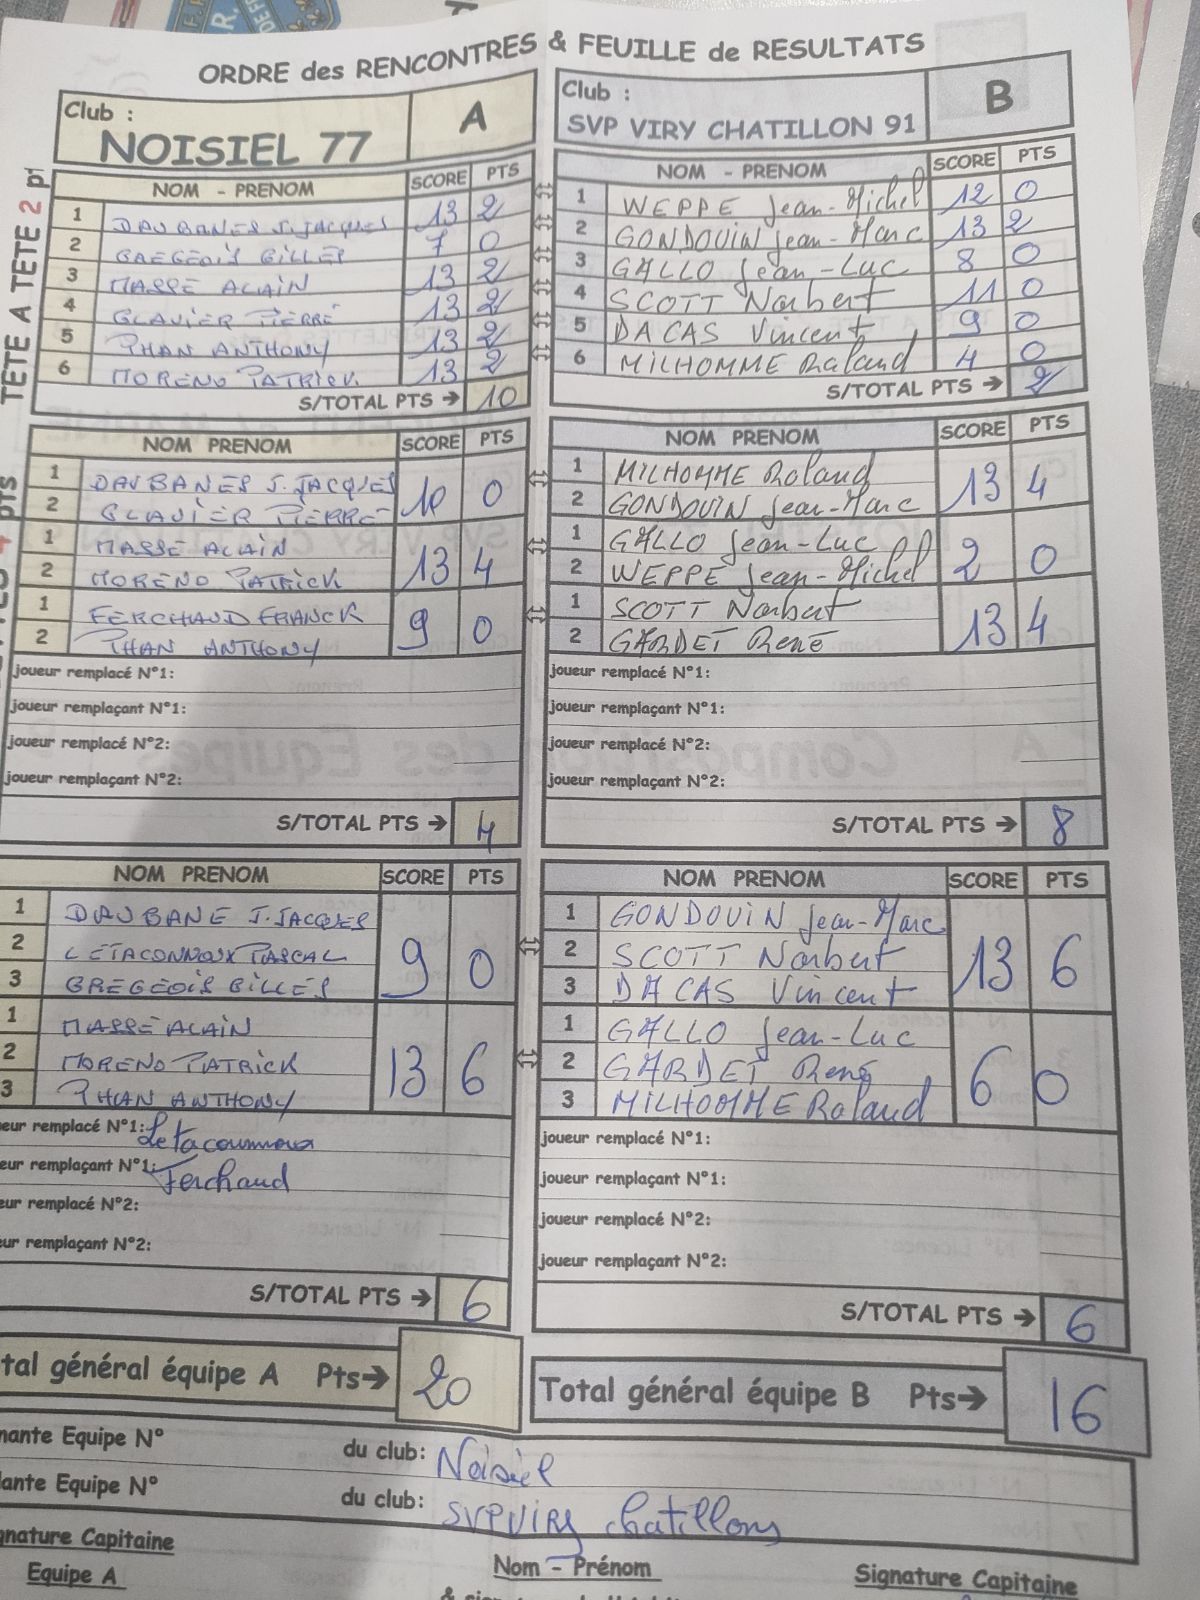 ORDRE des RENCONTRES & FEUILLE de RESULTATS
Club : A
NOISIEL 77
Club : B
SVP VIRY CHATILLON 91
TETE A TETE 2 p
NOM - PRENOM SCORE PTS
1 DAUBANES J.JACQUES 13 2
2 GREGEOIS GILLES 7 0
3 MASSE ALAIN 13 2
4 GLAVIER PIERRE 13 2
5 PHAN ANTHONY 13 2
6 MORENO PATRICK 13 2
S/TOTAL PTS → 10
NOM - PRENOM SCORE PTS
1 WEPPE Jean-Michel 12 0
2 GONDOUIN Jean-Marc 13 2
3 GALLO Jean-Luc 8 0
4 SCOTT Norbert 11 0
5 DACAS Vincent 9 0
6 MILHOMME Roland 4 0
S/TOTAL PTS → 2
pts
NOM PRENOM SCORE PTS
1 DAUBANES J.JACQUES 10 0
2 GLAVIER PIERRE
1 MASSE ALAIN 13 4
2 MORENO PATRICK
1 FERCHAUD FRANCK 9 0
2 PHAN ANTHONY
joueur remplacé N°1:
joueur remplaçant N°1:
joueur remplacé N°2:
joueur remplaçant N°2:
S/TOTAL PTS → 4
NOM PRENOM SCORE PTS
1 MILHOMME Roland 13 4
2 GONDOUIN Jean-Marc
1 GALLO Jean-Luc 2 0
2 WEPPE Jean-Michel
1 SCOTT Norbert 13 4
2 GARDET René
joueur remplacé N°1:
joueur remplaçant N°1:
joueur remplacé N°2:
joueur remplaçant N°2:
S/TOTAL PTS → 8
NOM PRENOM SCORE PTS
1 DAUBANE J.JACQUES 9 0
2 LETACONNOUX PASCAL
3 GREGEOIS GILLES
1 MASSE ALAIN 13 6
2 MORENO PATRICK
3 PHAN ANTHONY
eur remplacé N°1: Letaconnoux
eur remplaçant N°1: Ferchaud
eur remplacé N°2:
eur remplaçant N°2:
S/TOTAL PTS → 6
NOM PRENOM SCORE PTS
1 GONDOUIN Jean-Marc 13 6
2 SCOTT Norbert
3 DACAS Vincent
1 GALLO Jean-Luc 6 0
2 GARDET René
3 MILHOMME Roland
joueur remplacé N°1:
joueur remplaçant N°1:
joueur remplacé N°2:
joueur remplaçant N°2:
S/TOTAL PTS → 6
tal général équipe A Pts→ 20
Total général équipe B Pts→ 16
nante Equipe N° du club: Noisiel
dante Equipe N° du club: SVP VIRY chatillons
gnature Capitaine
Equipe A
Nom - Prénom
Signature Capitaine